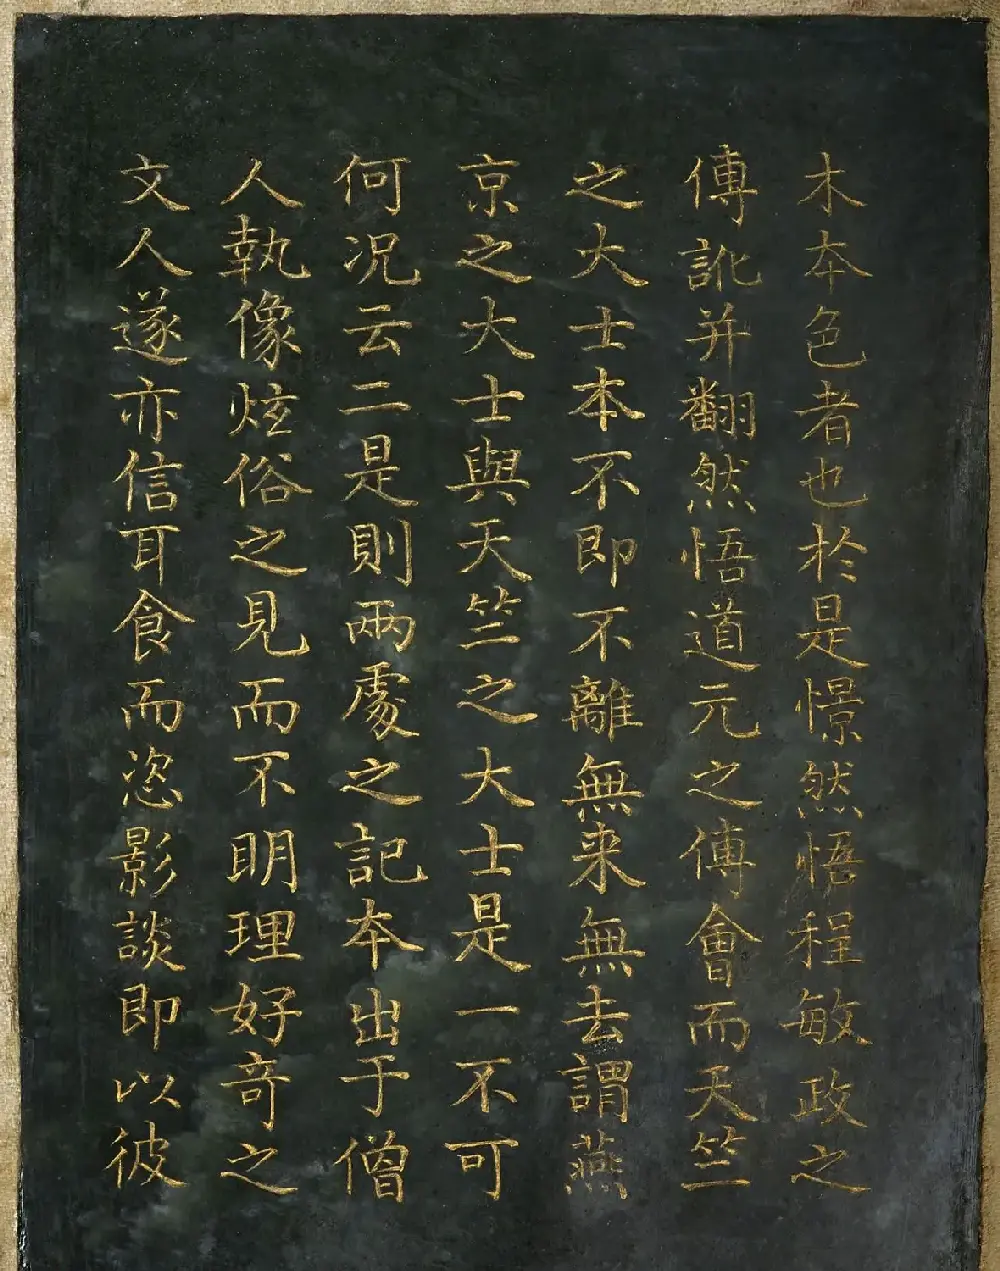 木本色者也於是憬然悟程敏政之
傳訛并翻然悟道元之傅會而天竺
之大士本不即不離無来無去謂燕
京之大士與天竺之大士是一不可
何况云二是則兩處之記本出于僧
人執像炫俗之見而不明理好奇之
文人遂亦信耳食而恣影談即以彼